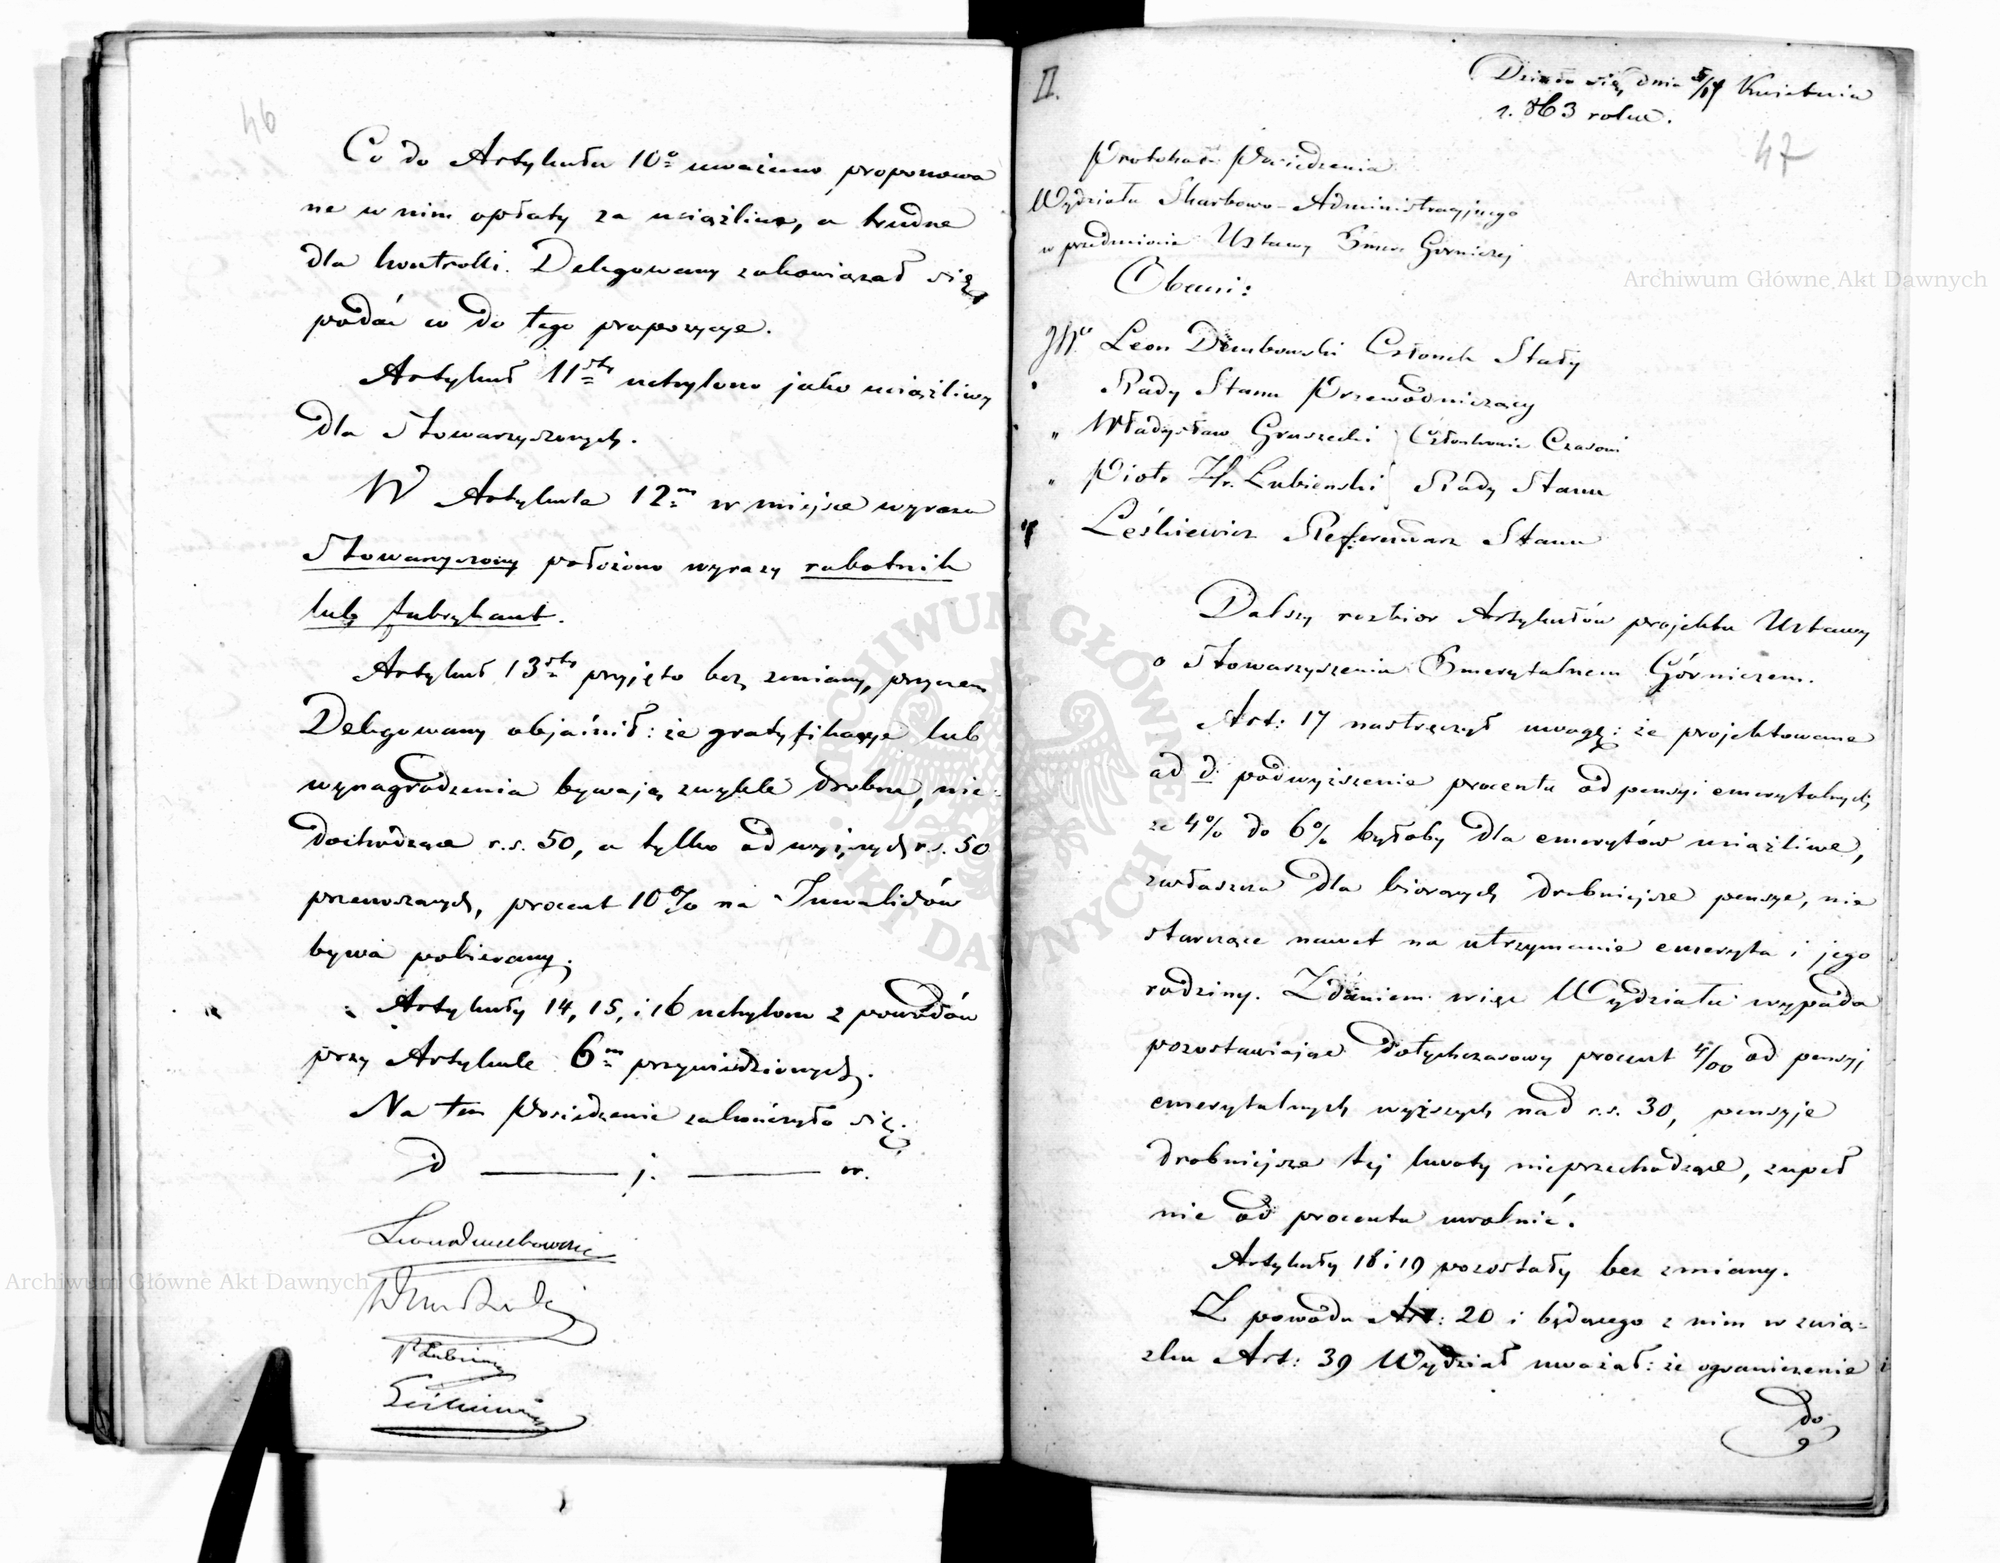 46
Co do Artykułu 10º uważano proponowa
ne w nim opłaty za uciążliwe, a trudne
dla kontrolli. Delegowany zobowiązał się
podać co do tego propozycje.
Artykuł 11sty uchylono jako uciążliwy
dla Stowarzyszonych.
W Artykule 12m w miejsce wyrazu
Stowarzyszony położono wyrazy robotnik
lub fabrykant.
Artykuł 13sty przyjęto bez zmiany, przyczem
Delegowany objaśnił: że gratyfikacye lub
wynagrodzenia bywają zwykle drobne, nie-
dochodzące r.s. 50, a tylko od wyższych r.s. 50
przenoszących, procent 10% na Inwalidów
bywa pobierany.
Artykuły 14, 15, i 16 uchylono z powodów
przy Artykule 6m przywiedzionych.
Na tem Posiedzenie zakończyło się.
d ——— j. ——— w.
Leon Dembowski
P Łubieński
Leśkiewicz
II.
Działo się dnia 5/17 Kwietnia
1863 roku.
47
Protokół Posiedzenia
Wydziału Skarbowo-Administracyjnego
w przedmiocie Ustawy Emer. Górniczej
Obecni:
JW. Leon Dembowski Członek Stały
Rady Stanu Przewodniczący
„ Władysław Gruszecki } Członkowie Czasowi
„ Piotr Hr. Łubieński } Rady Stanu
„ Leśkiewicz Referendarz Stanu
Dalszy rozbior Artykułów projektu Ustawy
o Stowarzyszeniu Emerytalnem Górniczem.
Art: 17 nastręczył uwagę: że projektowane
ad d. podwyższenie procentu od pensyi emerytalnych
ze 4% do 6% byłoby dla emerytów uciążliwe,
zwłaszcza dla biorących drobniejsze pensye, nie
starczące nawet na utrzymanie emeryta i jego
rodziny. Zdaniem więc Wydziału wypada
pozostawiając dotychczasowy procent 4/00 od pensyj
emerytalnych wyższych nad r.s. 30, pensyje
drobniejsze tej kwoty nieprzechodzące, zupeł
nie od procentu uwolnić.
Artykuły 18 i 19 pozostały bez zmiany.
Z powodu Art: 20 i będącego z nim w zwią-
zku Art: 39 Wydział uważał: że ograniczenie
do
Archiwum Główne Akt Dawnych
Archiwum Główne Akt Dawnych
ARCHIWUM GŁÓWNE AKT DAWNYCH